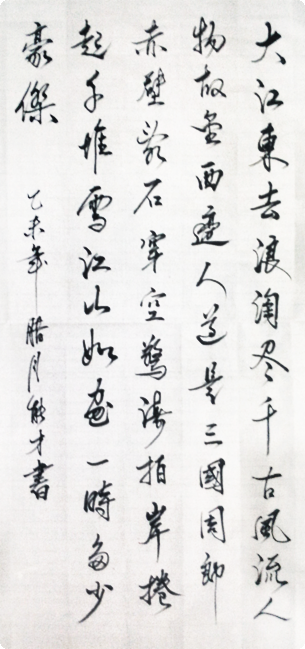 大江東去浪淘尽千古風流人
物故壘西邊人道是三國周郎
赤壁乱石穿空驚濤拍岸捲
起千堆雪江山如畫一時多少
豪傑
乙未年臘月能才書